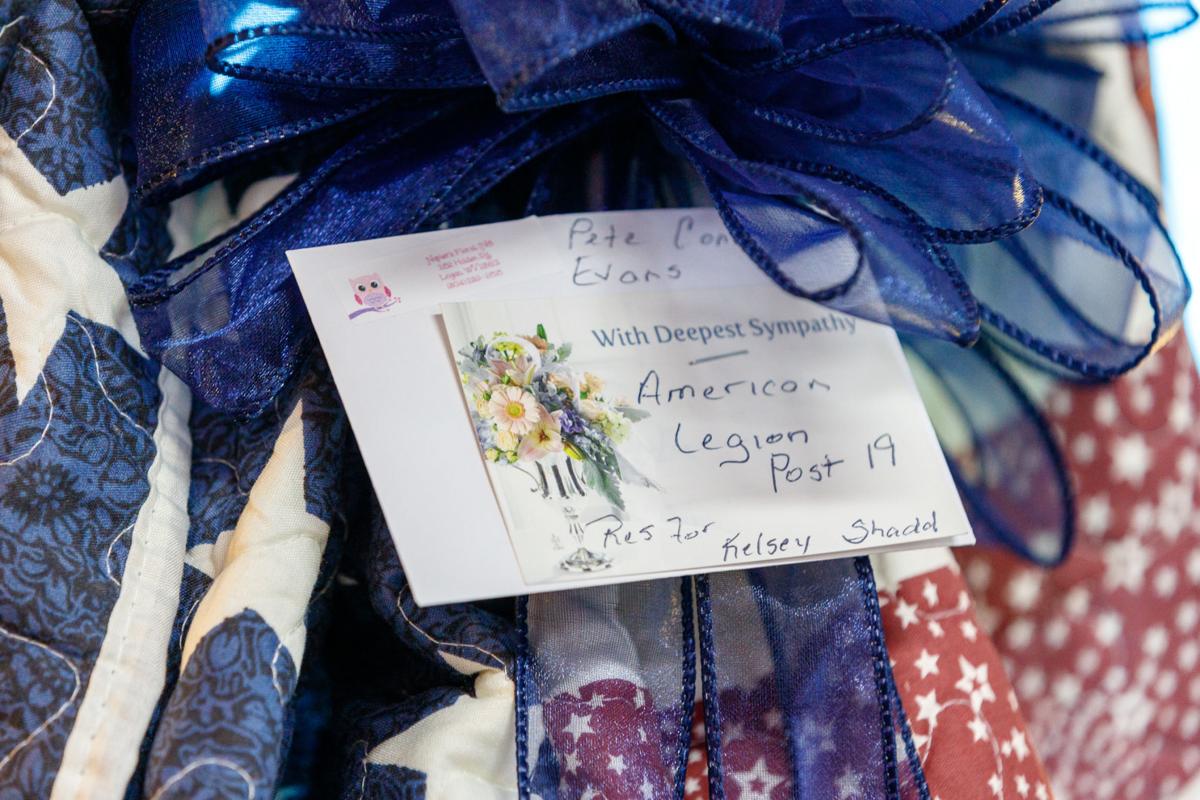 Pete Con
Evans
With Deepest Sympathy
American
Legion
Post 19
Res for Kelsey Shadd